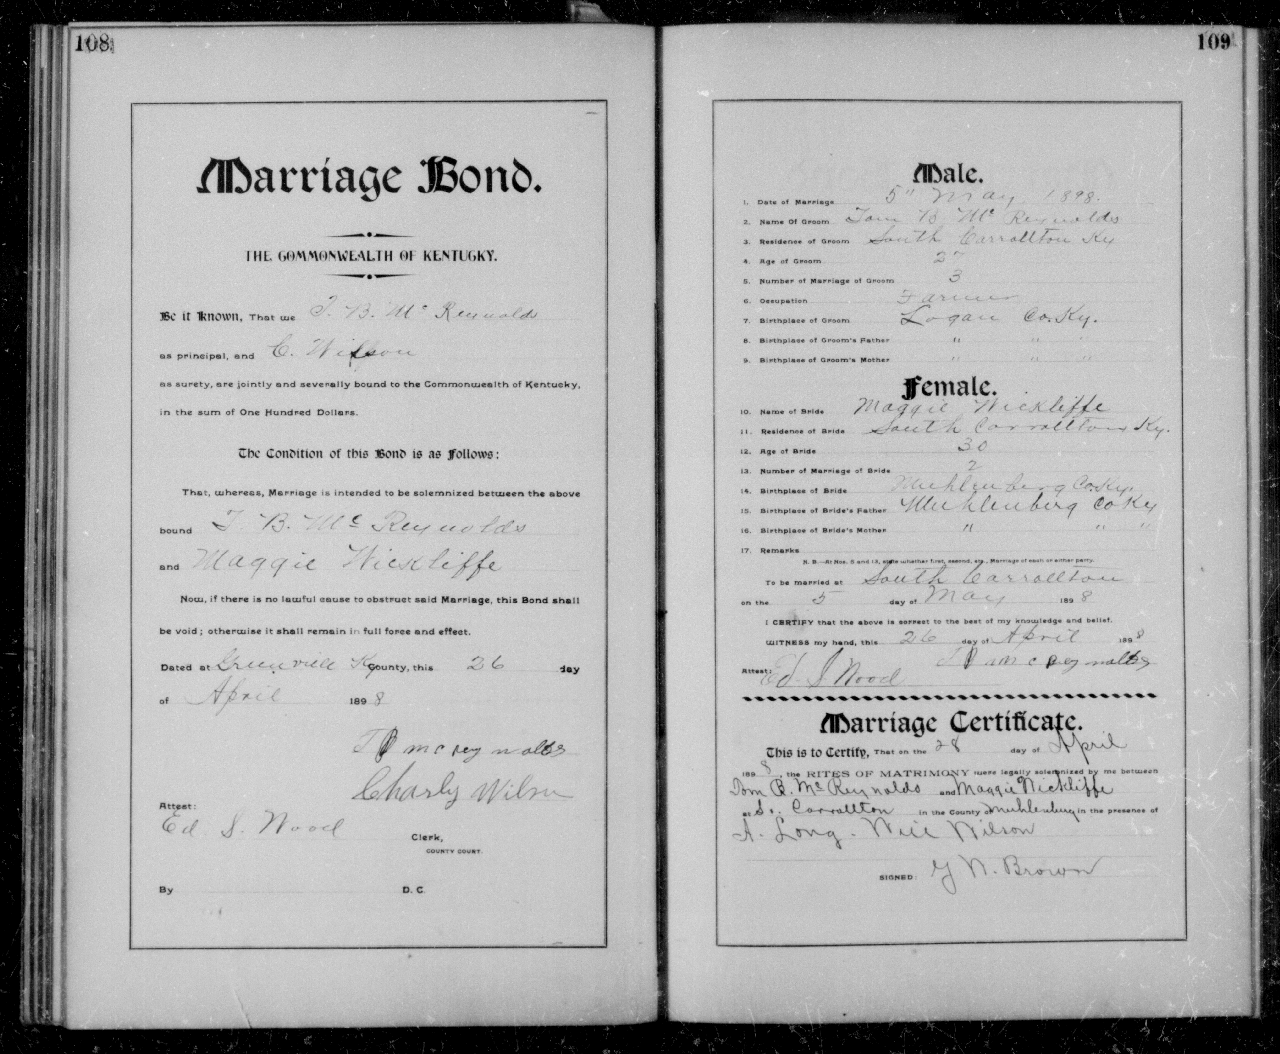 108
Marriage Bond.
THE COMMONWEALTH OF KENTUCKY.
Be it Known, That we T. B. Mc Reynolds
as principal, and C. Wilson
as surety, are jointly and severally bound to the Commonwealth of Kentucky,
in the sum of One Hundred Dollars.
The Condition of this Bond is as Follows:
That, whereas, Marriage is intended to be solemnized between the above
bound T. B. Mc Reynolds
and Maggie Wickliffe
Now, if there is no lawful cause to obstruct said Marriage, this Bond shall
be void; otherwise it shall remain in full force and effect.
Dated at Greenville Ky County, this 26 day
of April 1898
T B mc reynolds
Charly Wilson
Attest:
Ed. S. Wood
Clerk,
COUNTY COURT.
By D. C.
109
Male.
1. Date of Marriage 5" May 1898.
2. Name Of Groom Tom B. Mc Reynolds
3. Residence of Groom South Carrollton Ky
4. Age of Groom 27
5. Number of Marriage of Groom 3
6. Occupation Farmer
7. Birthplace of Groom Logan Co. Ky.
8. Birthplace of Groom's Father " " "
9. Birthplace of Groom's Mother " " "
Female.
10. Name of Bride Maggie Wickliffe
11. Residence of Bride South Carrollton Ky.
12. Age of Bride 30
13. Number of Marriage of Bride 2
14. Birthplace of Bride Muhlenberg Co. Ky.
15. Birthplace of Bride's Father Muhlenberg Co Ky
16. Birthplace of Bride's Mother " " "
17. Remarks
N. B.—At Nos. 5 and 13, state whether first, second, etc., Marriage of each or either party.
To be married at South Carrollton
on the 5 day of May 1898
I CERTIFY that the above is correct to the best of my knowledge and belief.
WITNESS my hand, this 26 day of April 1898
T B mc reynolds
Attest: Ed. S Wood
Marriage Certificate.
This is to Certify, That on the 28 day of April
1898, the RITES OF MATRIMONY were legally solemnized by me between
Tom B. Mc Reynolds and Maggie Wickliffe
at So. Carrollton in the County of Muhlenberg in the presence of
A. Long. Will Wilson
SIGNED: G N. Brown